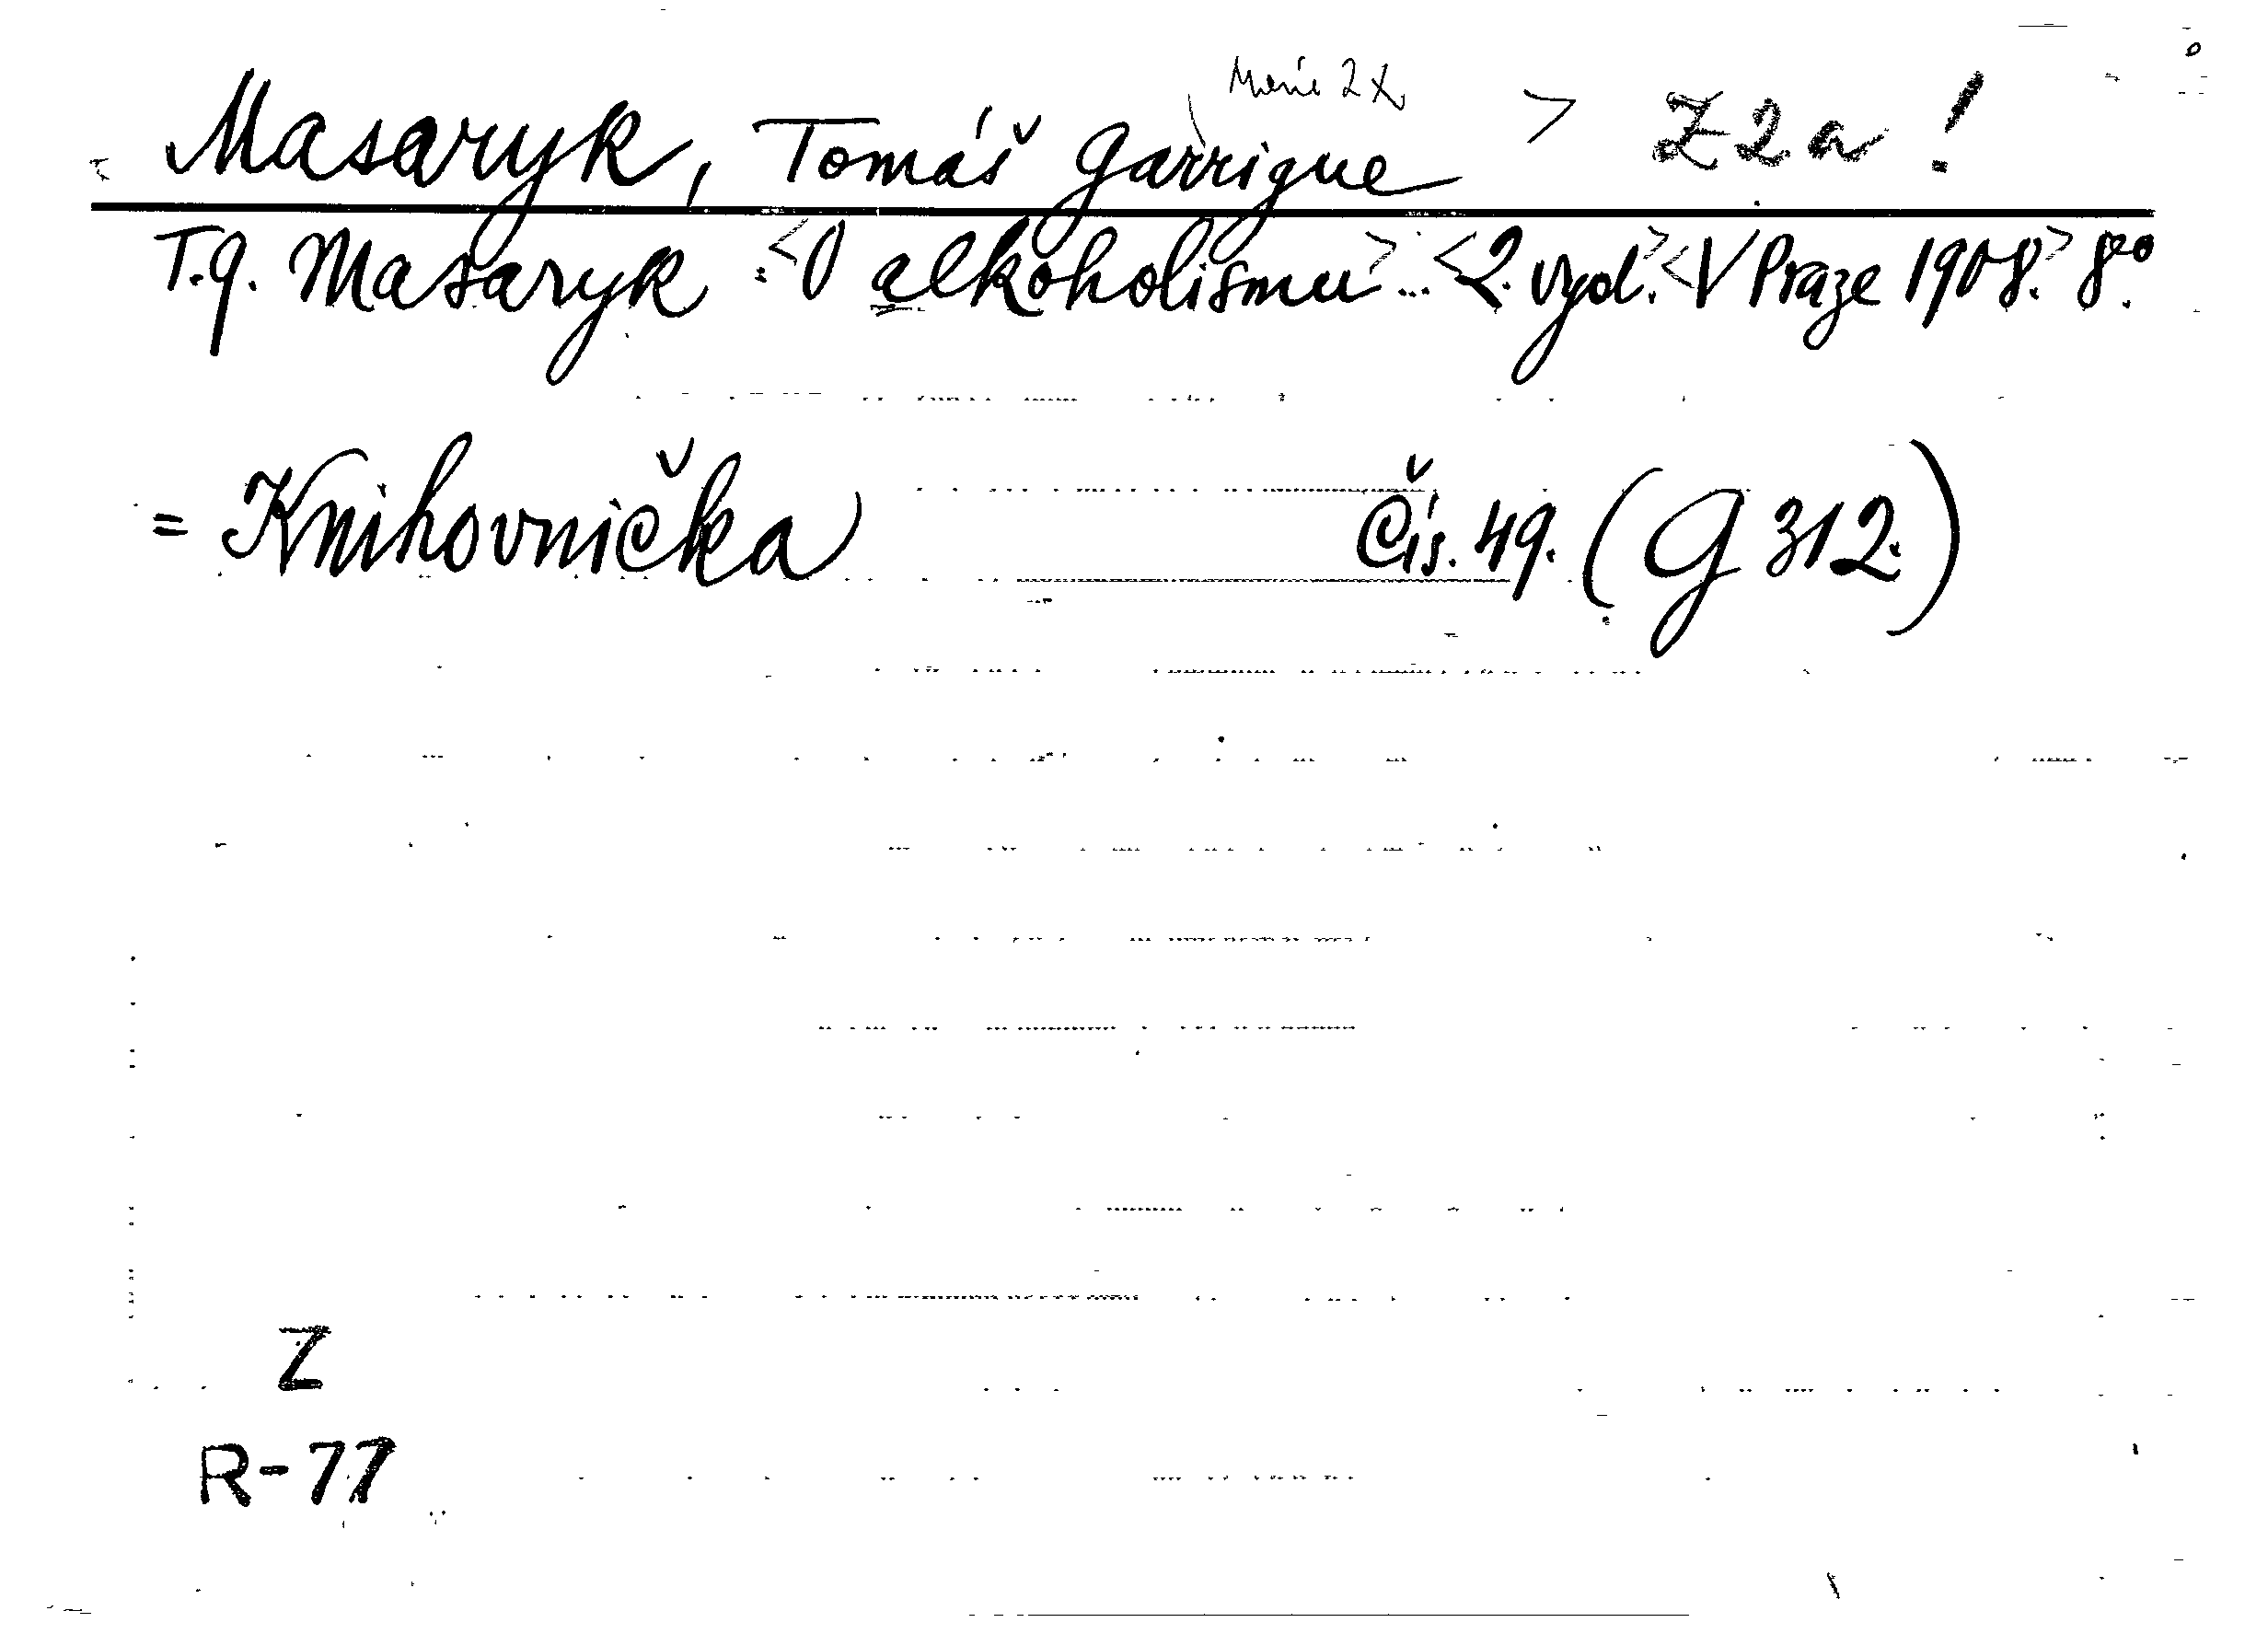 Masaryk, Tomáš Garrigue > Z 2 a !
T.G. Masaryk: <O alkoholismu>... <2. vyd.> <V Praze 1908.> 8°.
= Knihovnička Čís. 49. (G 312.)
Z
R-77